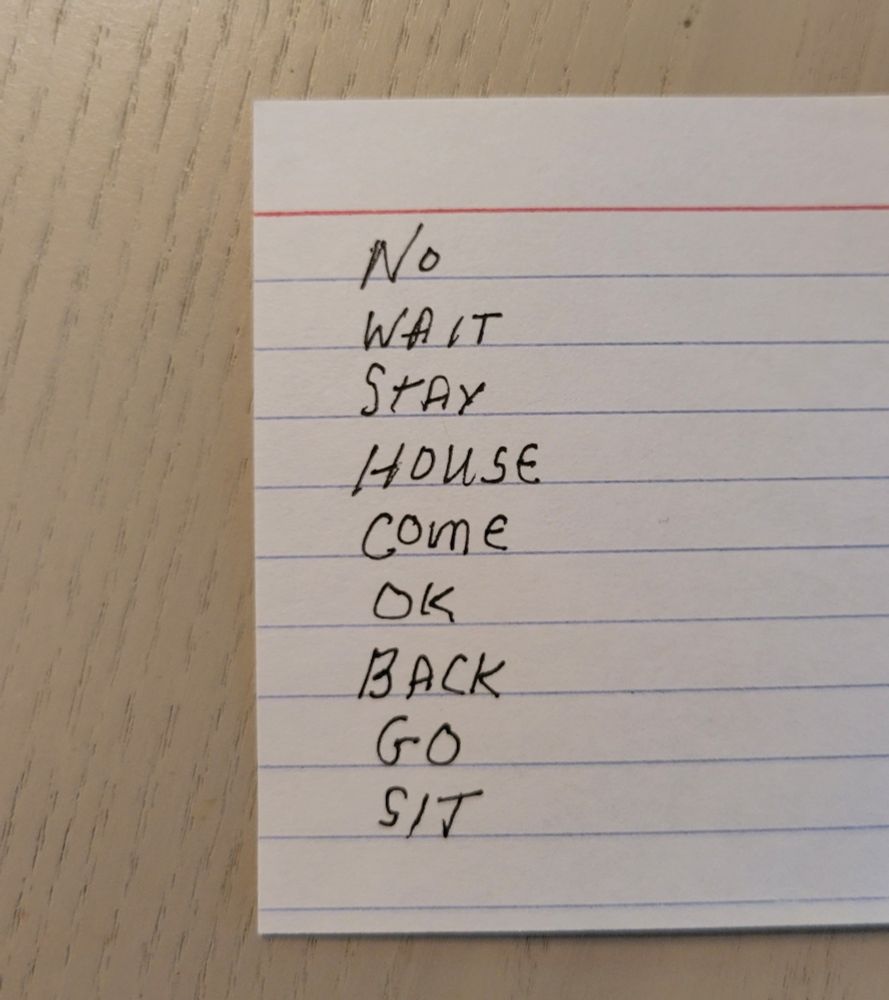 No
WAIT
StAY
HOUSE
Come
OK
BACK
GO
SIT